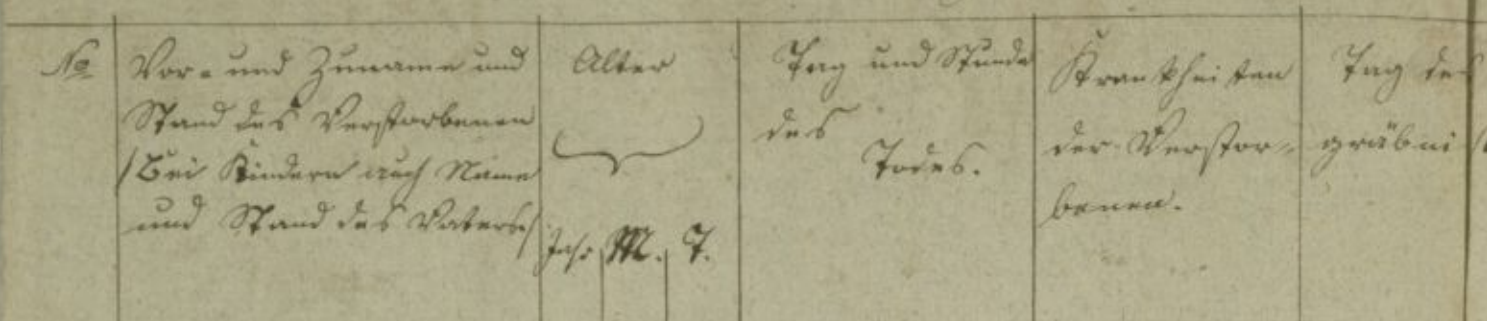 No
Vor- und Zuname und
Stand des Verstorbenen
/Bei Kindern auch Name
und Stand des Vaters/
Alter
Jahr M. T.
Tag und Stunde
des
Todes.
Krankheiten
der Verstor-
benen.
Tag des
gräbni